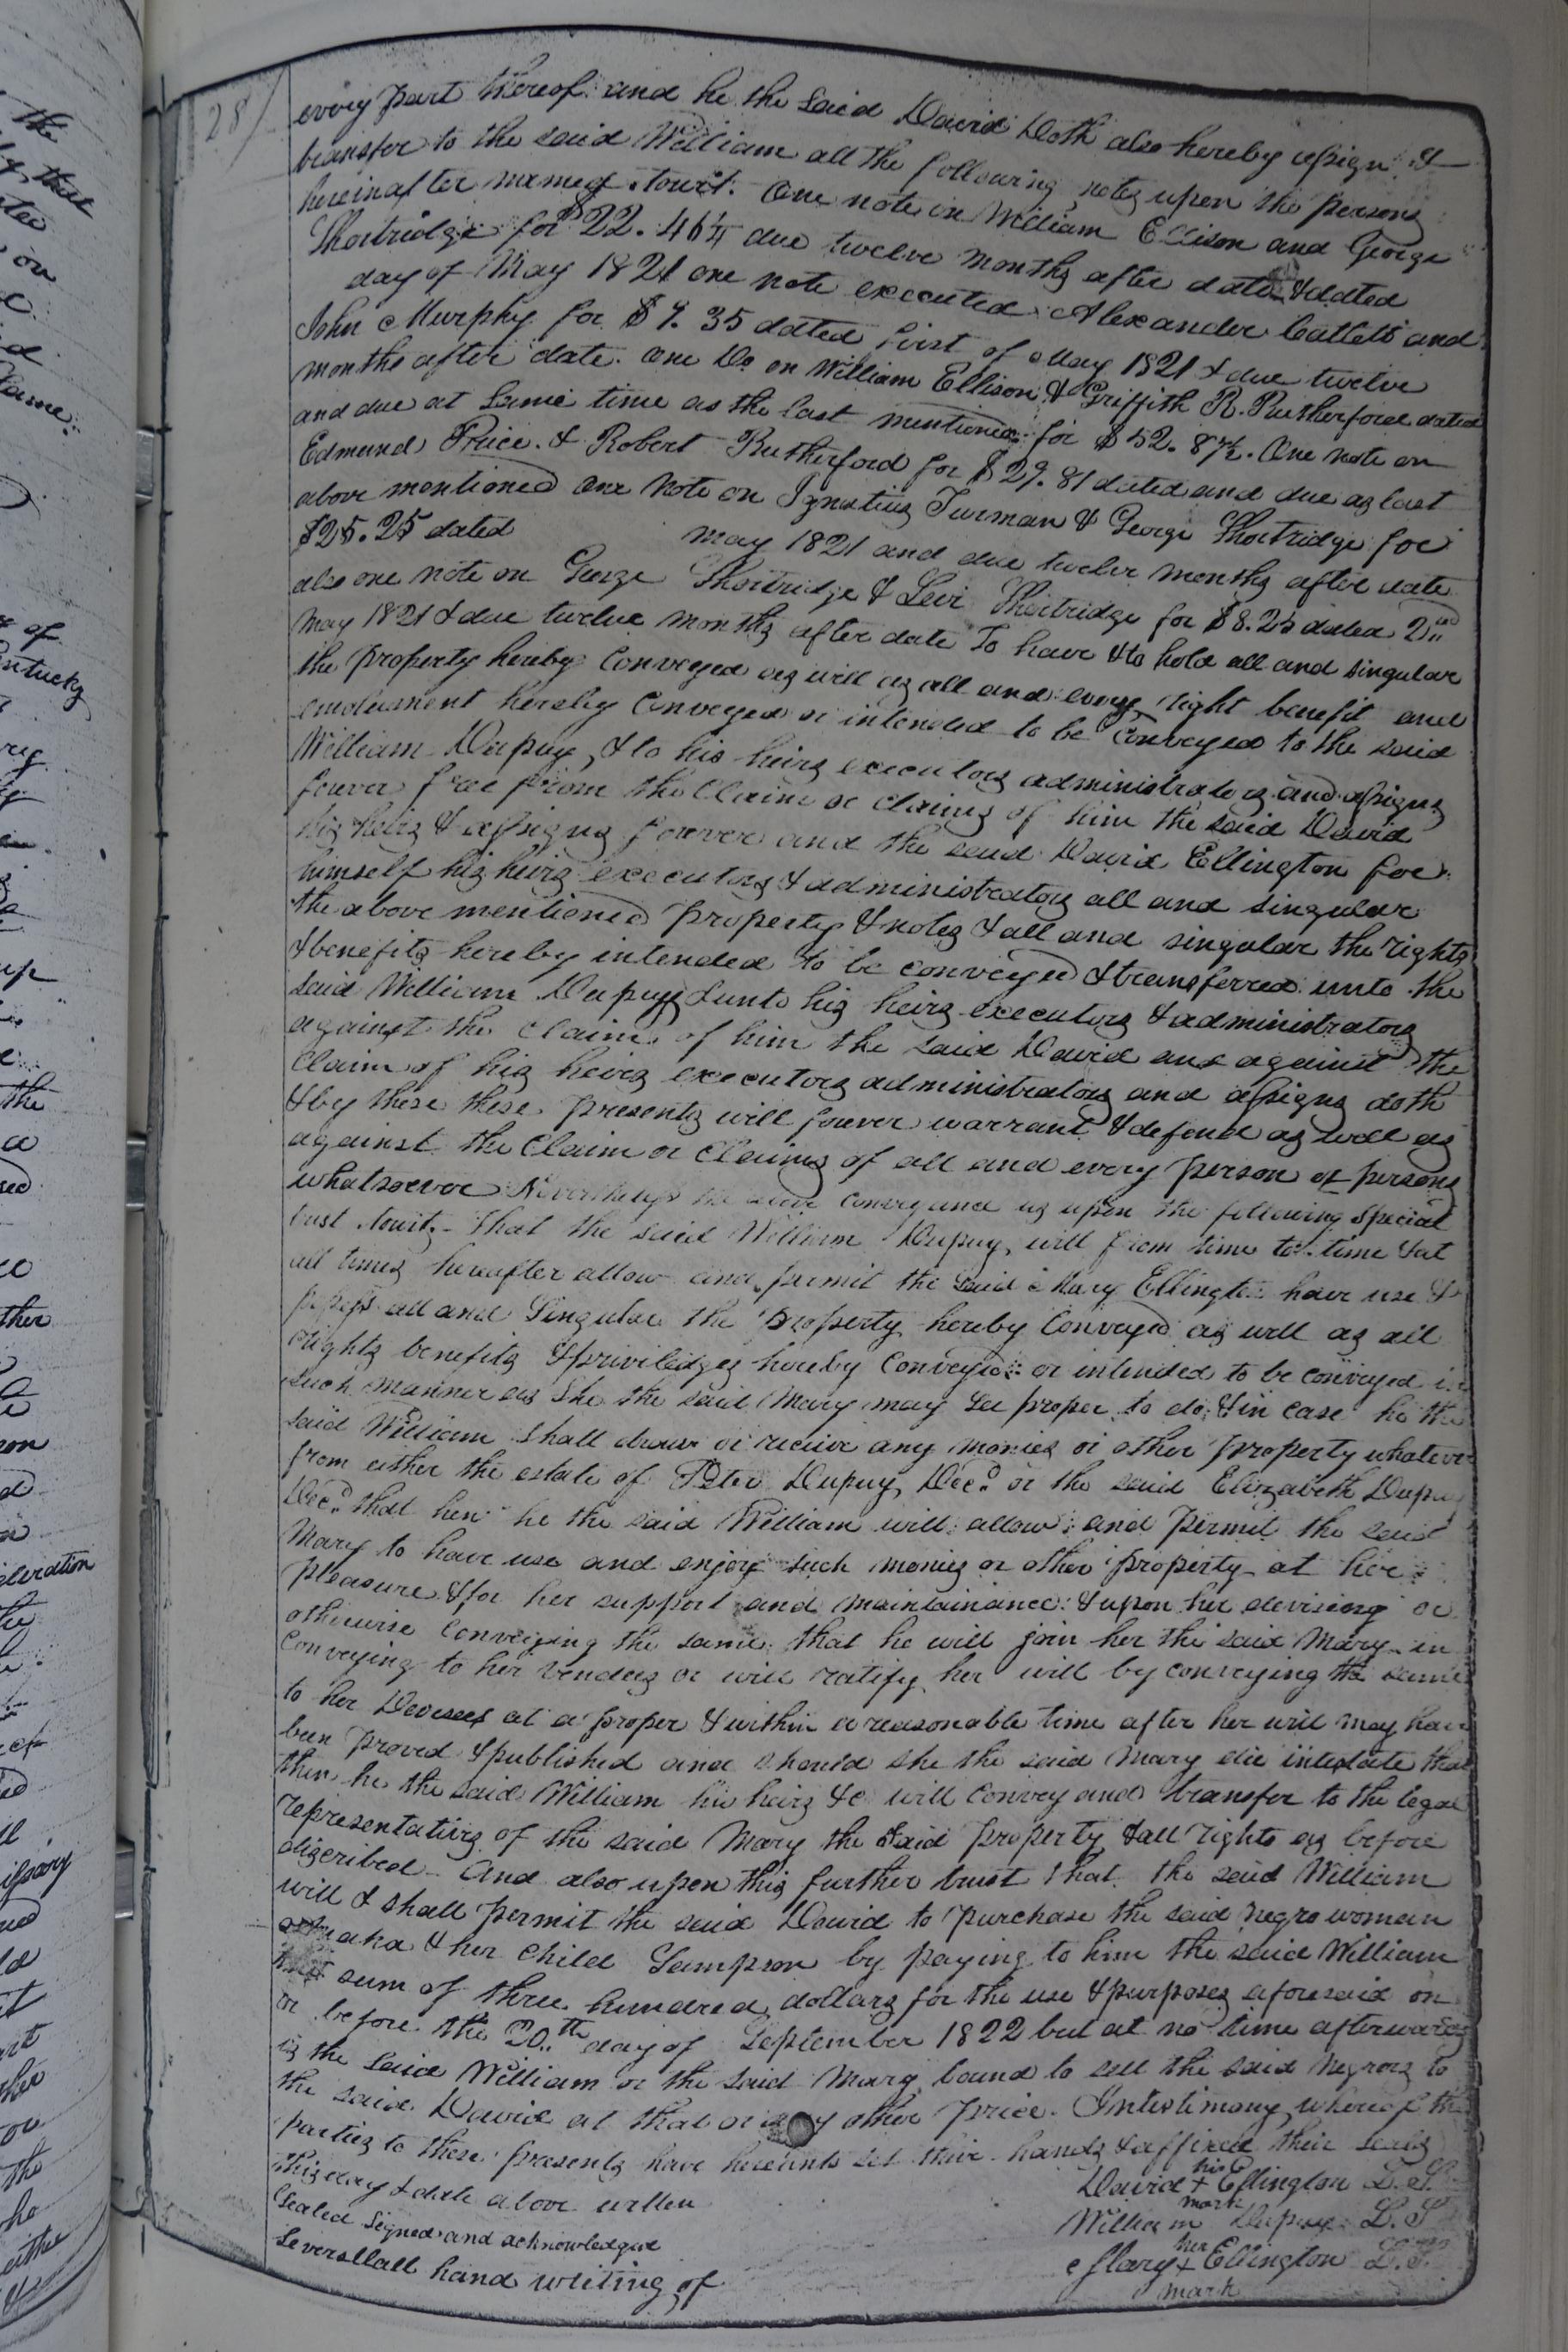 28
every part thereof and he the said David Doth also hereby assign &
transfer to the said William all the following notes upon the persons
hereinafter named towit. One note on William Ellison and George
Shortridge for $22.46¼ due twelve months after date & dated
day of May 1821 one note executed Alexander Catlett and
John Murphy for $9.35 dated first of May 1821 & due twelve
months after date. One Do on William Ellison & Griffith R. Rutherford dated
and due at same time as the last mentioned for $52.87½. One note on
Edmund Price & Robert Rutherford for $29.81 dated and due as last
above mentioned One Note on Ignatius Turman & George Shortridge for
$25.25 dated May 1821 and due twelve months after date
also one note on George Shortridge & Levi Shortridge for $8.25 dated 2nd
May 1821 & due twelve months after date To have & to hold all and singular
the property hereby Conveyed as will as all and every right benefit and
emolument hereby Conveyed or intended to be Conveyed to the said
William Dupuy, & to his heirs executors administrators and assigns
forever free from the Claim or claims of him the said David
his heirs & assigns forever and the said David Ellington for
himself his heirs executors & administrators all and singular
the above mentioned property & notes & all and singular the rights
& benefits hereby intended to be conveyed & transferred unto the
said William Dupuy & unto his heirs executors & administrators
against the Claim of him the said David and against the
Claim of his heirs executors administrators and assigns doth
& by these these presents will forever warrant & defend as well as
against the Claim or Claims of all and every person or persons
whatsoever Nevertheless conveyance is upon the following special
trust towit. That the said William Dupuy, will from time to time & at
all times hereafter allow and permit the said Mary Ellington have use &
possess all and Singular the property hereby Conveyed as will as all
rights benefits & priviledges hereby Conveyed or intended to be conveyed in
such manner as she the said Mary may see proper to do, & in case he the
said William shall draw or recieve any monies or other property whatever
from either the estate of Peter Dupuy, Decd or the said Elizabeth Dupuy
Decd that hen he the said William will allow and permit the said
Mary to have use and enjoy such monies or other property at her
pleasure & for her support and maintainance & upon her devising or
otherwise Conveying the same that he will join her the said Mary in
Conveying to her vendees or will ratify her will by conveying the same
to her Devisees at a proper & within a reasonable time after her will may have
been proved & published and should she the said Mary die intestate that
then he the said William his heirs &c will Convey and transfer to the legal
representatives of the said Mary the said property & all rights as before
discribed - And also upon this further trust that the said William
will & shall permit the said David to purchase the said negro woman
& her Child Sampson by paying to him the said William
sum of three hundred dollars for the use & purposes aforesaid on
or before the 20th day of September 1822 but at no time afterwards
is the said William or the said Mary bound to sell the said negroes to
the said David at that or any other price. Intestimony whereof the
parties to these presents have hereunto set their hands & affixed their seals
this day & date above written
David his + mark Ellington L.S.
Sealed signed and acknowledged
William Dupuy L.S
hand writing of
Mary her + mark Ellington L.S.